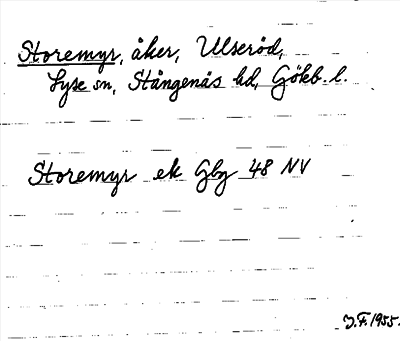 Storemyr, åker, Ulseröd,
Lyse sn, Stångenäs hd, Gökb. l.
Storemyr ek Gbg 48 NV
J.F. 1955.